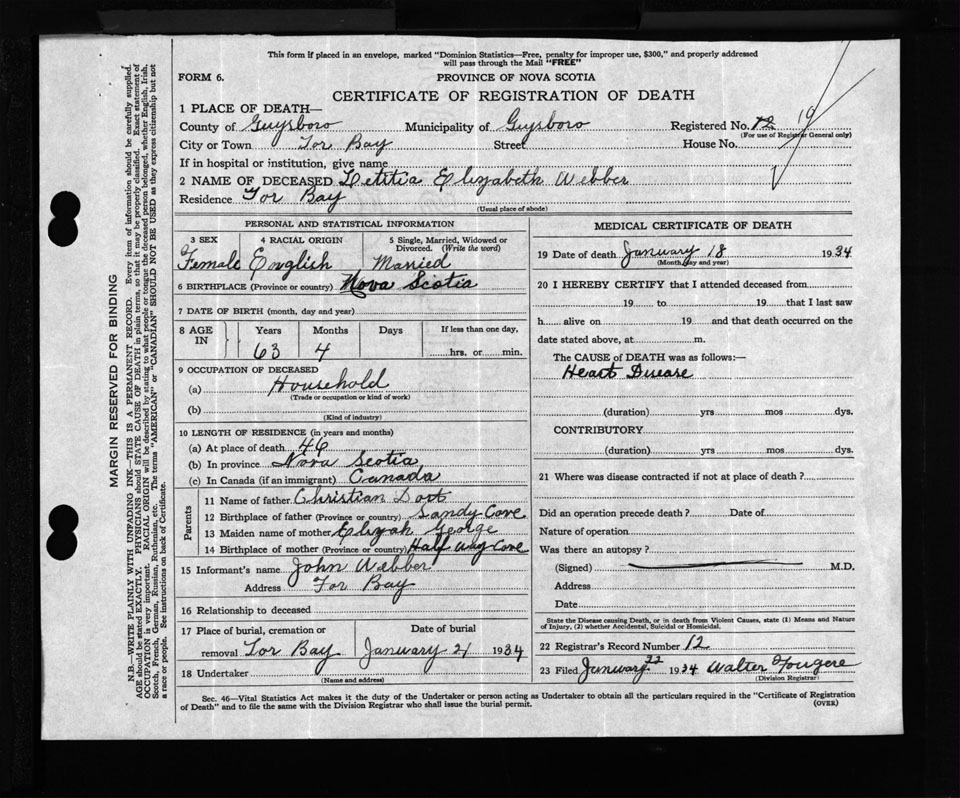 This form if placed in an envelope, marked "Dominion Statistics—Free, penalty for improper use, $300," and properly addressed
will pass through the Mail "FREE"
FORM 6.
PROVINCE OF NOVA SCOTIA
CERTIFICATE OF REGISTRATION OF DEATH
1 PLACE OF DEATH—
County of Guysboro Municipality of Guysboro Registered No. 12 19
(For use of Registrar General only)
City or Town Tor Bay Street House No.
If in hospital or institution, give name
2 NAME OF DECEASED Letitia Elizabeth Webber
Residence Tor Bay
(Usual place of abode)
PERSONAL AND STATISTICAL INFORMATION
3 SEX 4 RACIAL ORIGIN 5 Single, Married, Widowed or
Divorced. (Write the word)
Female English Married
6 BIRTHPLACE (Province or country) Nova Scotia
7 DATE OF BIRTH (month, day and year)
8 AGE IN Years Months Days If less than one day,
63 4 hrs. or min.
9 OCCUPATION OF DECEASED
(a) Household
(Trade or occupation or kind of work)
(b)
(Kind of industry)
10 LENGTH OF RESIDENCE (in years and months)
(a) At place of death 46
(b) In province Nova Scotia
(c) In Canada (if an immigrant) Canada
Parents
11 Name of father Christian Dort
12 Birthplace of father (Province or country) Sandy Cove
13 Maiden name of mother Elizah George
14 Birthplace of mother (Province or country) Half Way Cove
15 Informant's name John Webber
Address Tor Bay
16 Relationship to deceased
17 Place of burial, cremation or Date of burial
removal Tor Bay January 21 1934
18 Undertaker
(Name and address)
MEDICAL CERTIFICATE OF DEATH
19 Date of death January 18 1934
(Month, day and year)
20 I HEREBY CERTIFY that I attended deceased from
19 to 19 that I last saw
h alive on 19 and that death occurred on the
date stated above, at m.
The CAUSE of DEATH was as follows:—
Heart Disease
(duration) yrs mos dys.
CONTRIBUTORY
(duration) yrs mos dys.
21 Where was disease contracted if not at place of death?
Did an operation precede death? Date of
Nature of operation
Was there an autopsy?
(Signed) M.D.
Address
Date
State the Disease causing Death, or in death from Violent Causes, state (1) Means and Nature
of Injury, (2) whether Accidental, Suicidal or Homicidal.
22 Registrar's Record Number 12
23 Filed January 22 1934 Walter Fougere
(Division Registrar)
Sec. 46—Vital Statistics Act makes it the duty of the Undertaker or person acting as Undertaker to obtain all the particulars required in the "Certificate of Registration
of Death" and to file the same with the Division Registrar who shall issue the burial permit.
(OVER)
MARGIN RESERVED FOR BINDING
N.B.—WRITE PLAINLY WITH UNFADING INK—THIS IS A PERMANENT RECORD. Every item of information should be carefully supplied.
AGE should be stated EXACTLY. PHYSICIANS should STATE CAUSE OF DEATH in plain terms, so that it may be properly classified. Exact statement of
OCCUPATION is very important. RACIAL ORIGIN will be described by stating to what people or tongue the deceased person belonged, whether English, Irish,
Scotch, French, German, Russian, Ruthenian, etc. The terms "AMERICAN" or "CANADIAN" SHOULD NOT BE USED as they express citizenship but not
a race or people. See instructions on back of Certificate.